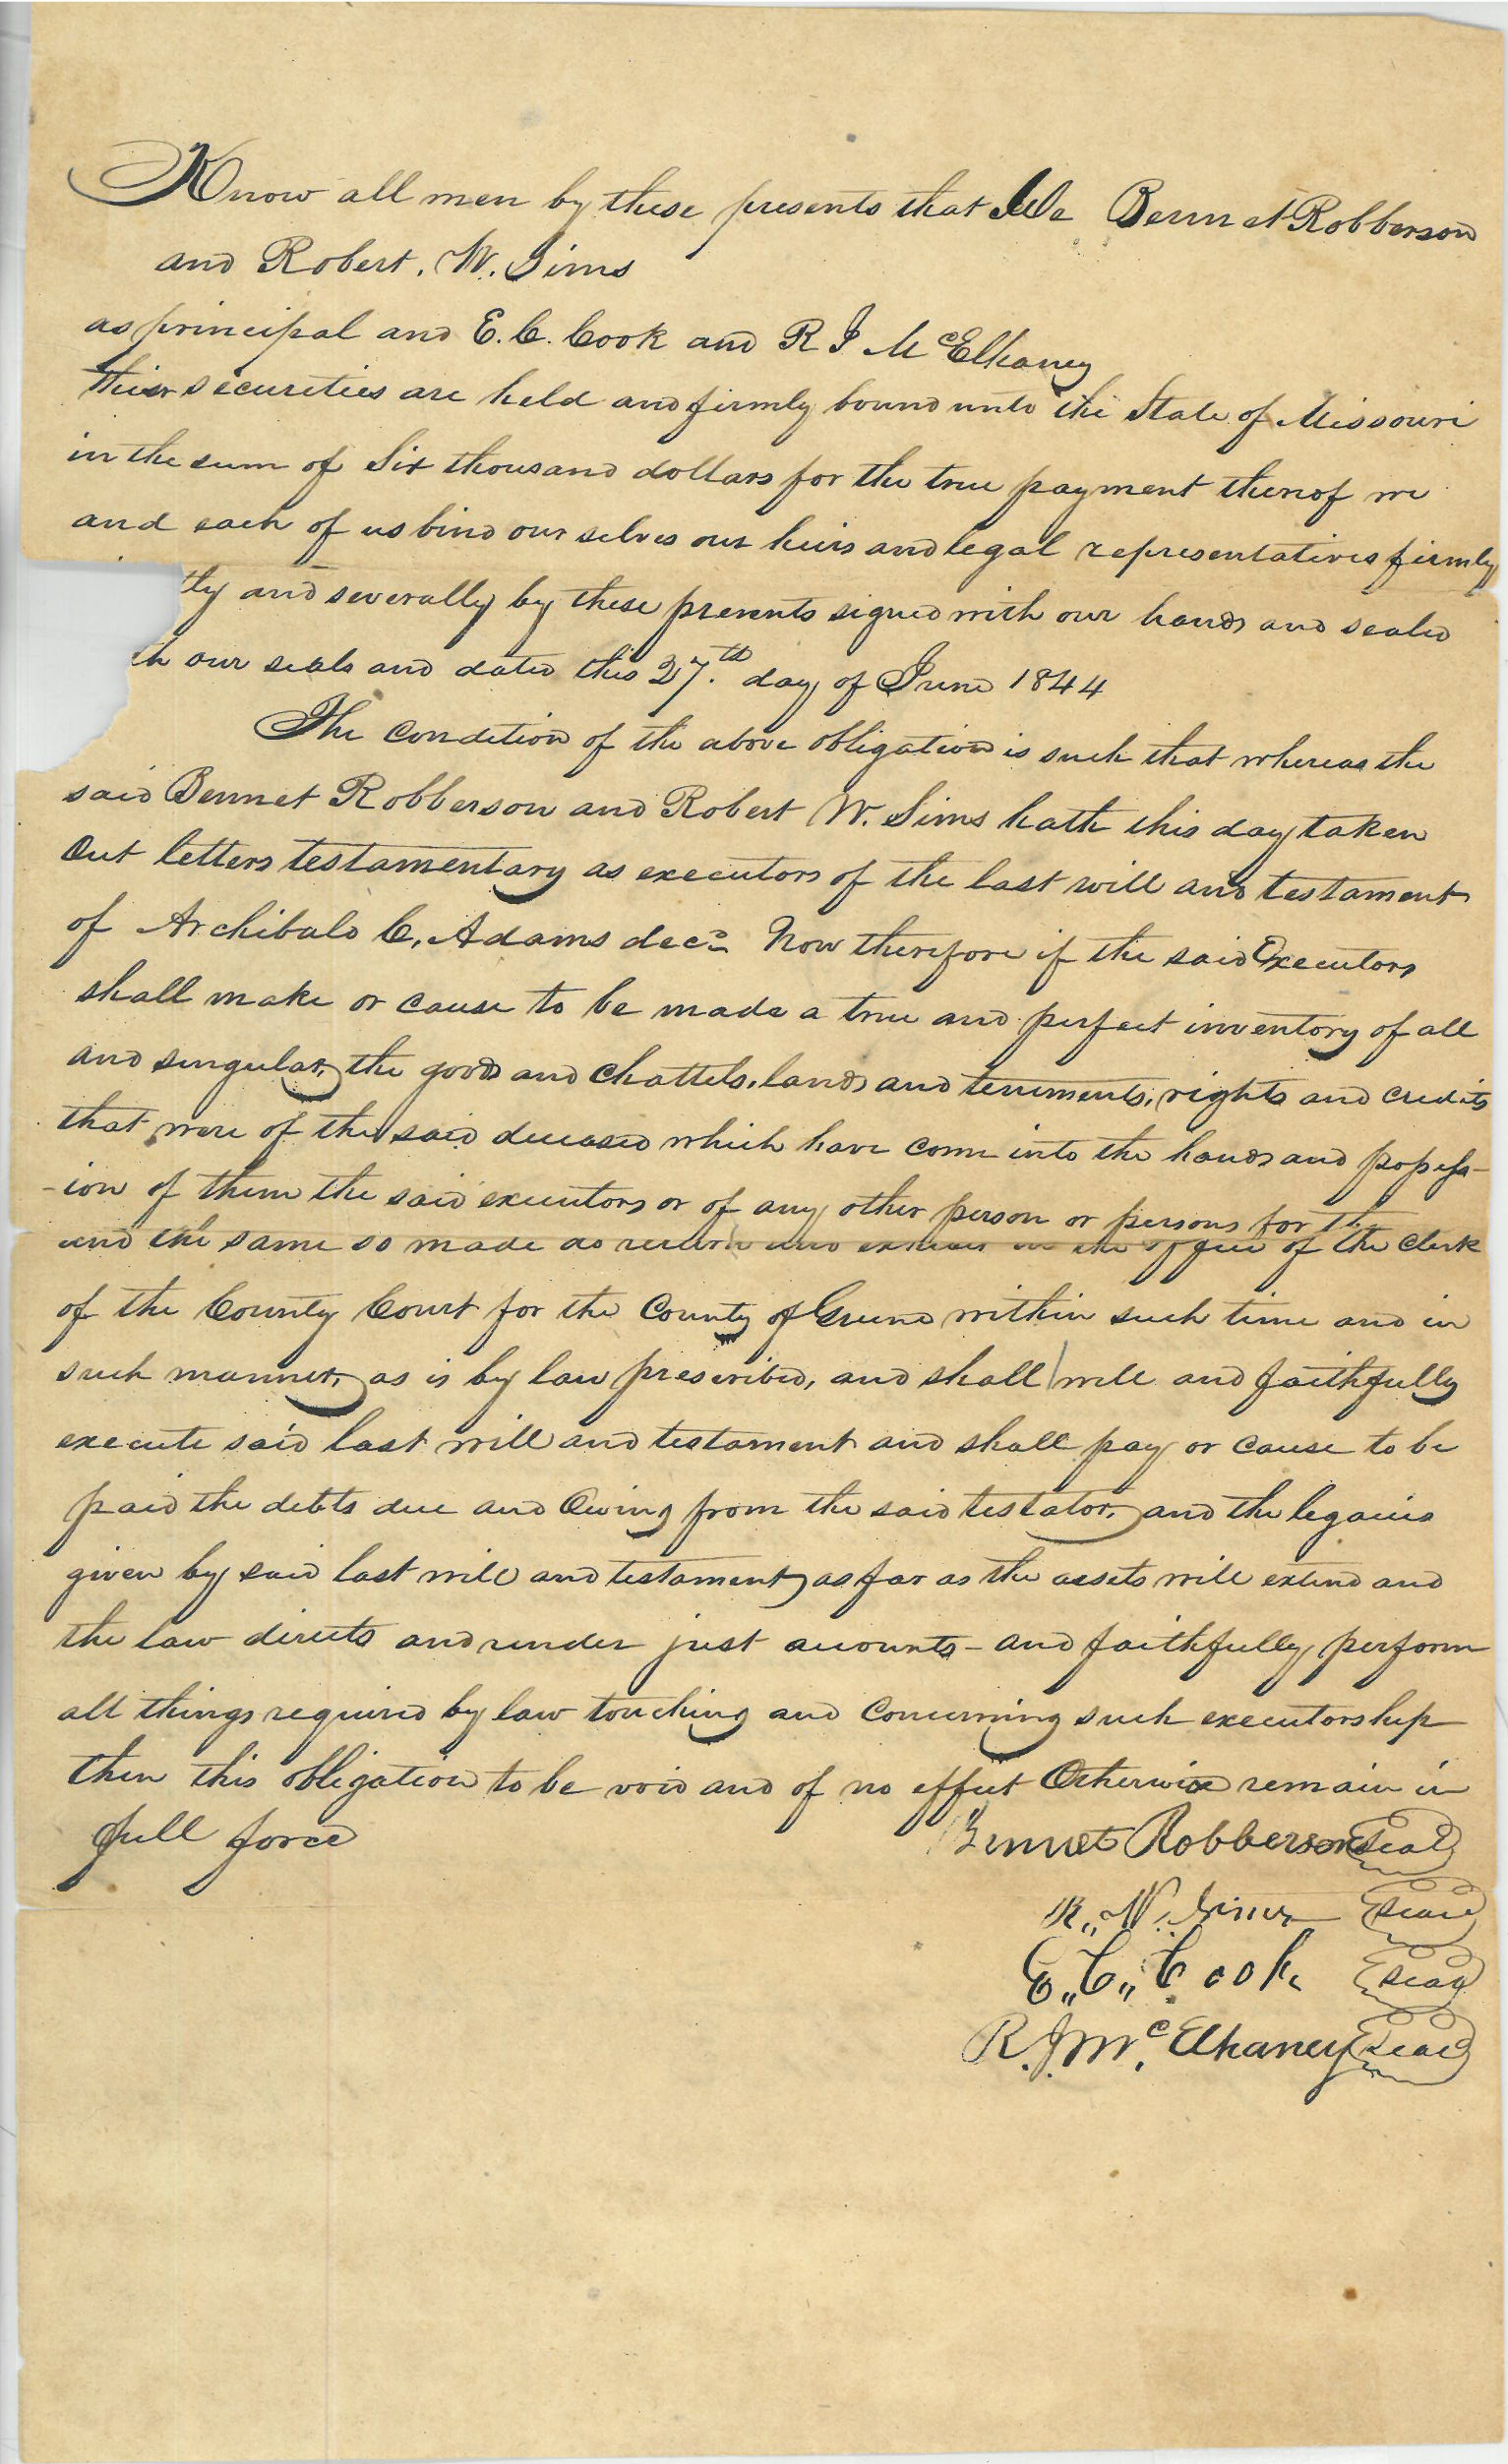 Know all men by these presents that We Bennet Robberson
and Robert. W. Sims
as principal and E. C. Cook and R J McElhaney
their securities are held and firmly bound unto the State of Missouri
in the sum of Six thousand dollars for the true payment thereof we
and each of us bind our selves our heirs and legal representatives firmly
tly and severally by these presents signed with our hands and sealed
th our seals and dated this 27.th day of June 1844
The Condition of the above obligation is such that whereas the
said Bennet Robberson and Robert W. Sims hath this day taken
Out letters testamentary as executors of the last will and testament
of Archibald C. Adams decd. Now therefore if the said Executors
shall make or cause to be made a true and perfect inventory of all
and singular, the goods and Chattels, lands and tenements, rights and credits
that were of the said deceased which have come into the hands and possess-
-ion of them the said executors or of any other person or persons for th
and the same so made do return and exhibit in the office of the Clerk
of the County Court for the County of Greene within such time and in
such manner, as is by law prescribed, and shall well and faithfully
execute said last will and testament and shall pay or cause to be
paid the debts due and Owing from the said testator, and the legacies
given by said last will and testament as far as the assets will extend and
the law directs and render just accounts - and faithfully perform
all things required by law touching and Concerning such executorship
then this obligation to be void and of no effect Otherwise remain in
full force
Bennet Robberson Seal
R,, W. Sims Seal
E,, C,, Cook Seal
R. J. Mc. Elhaney Seal